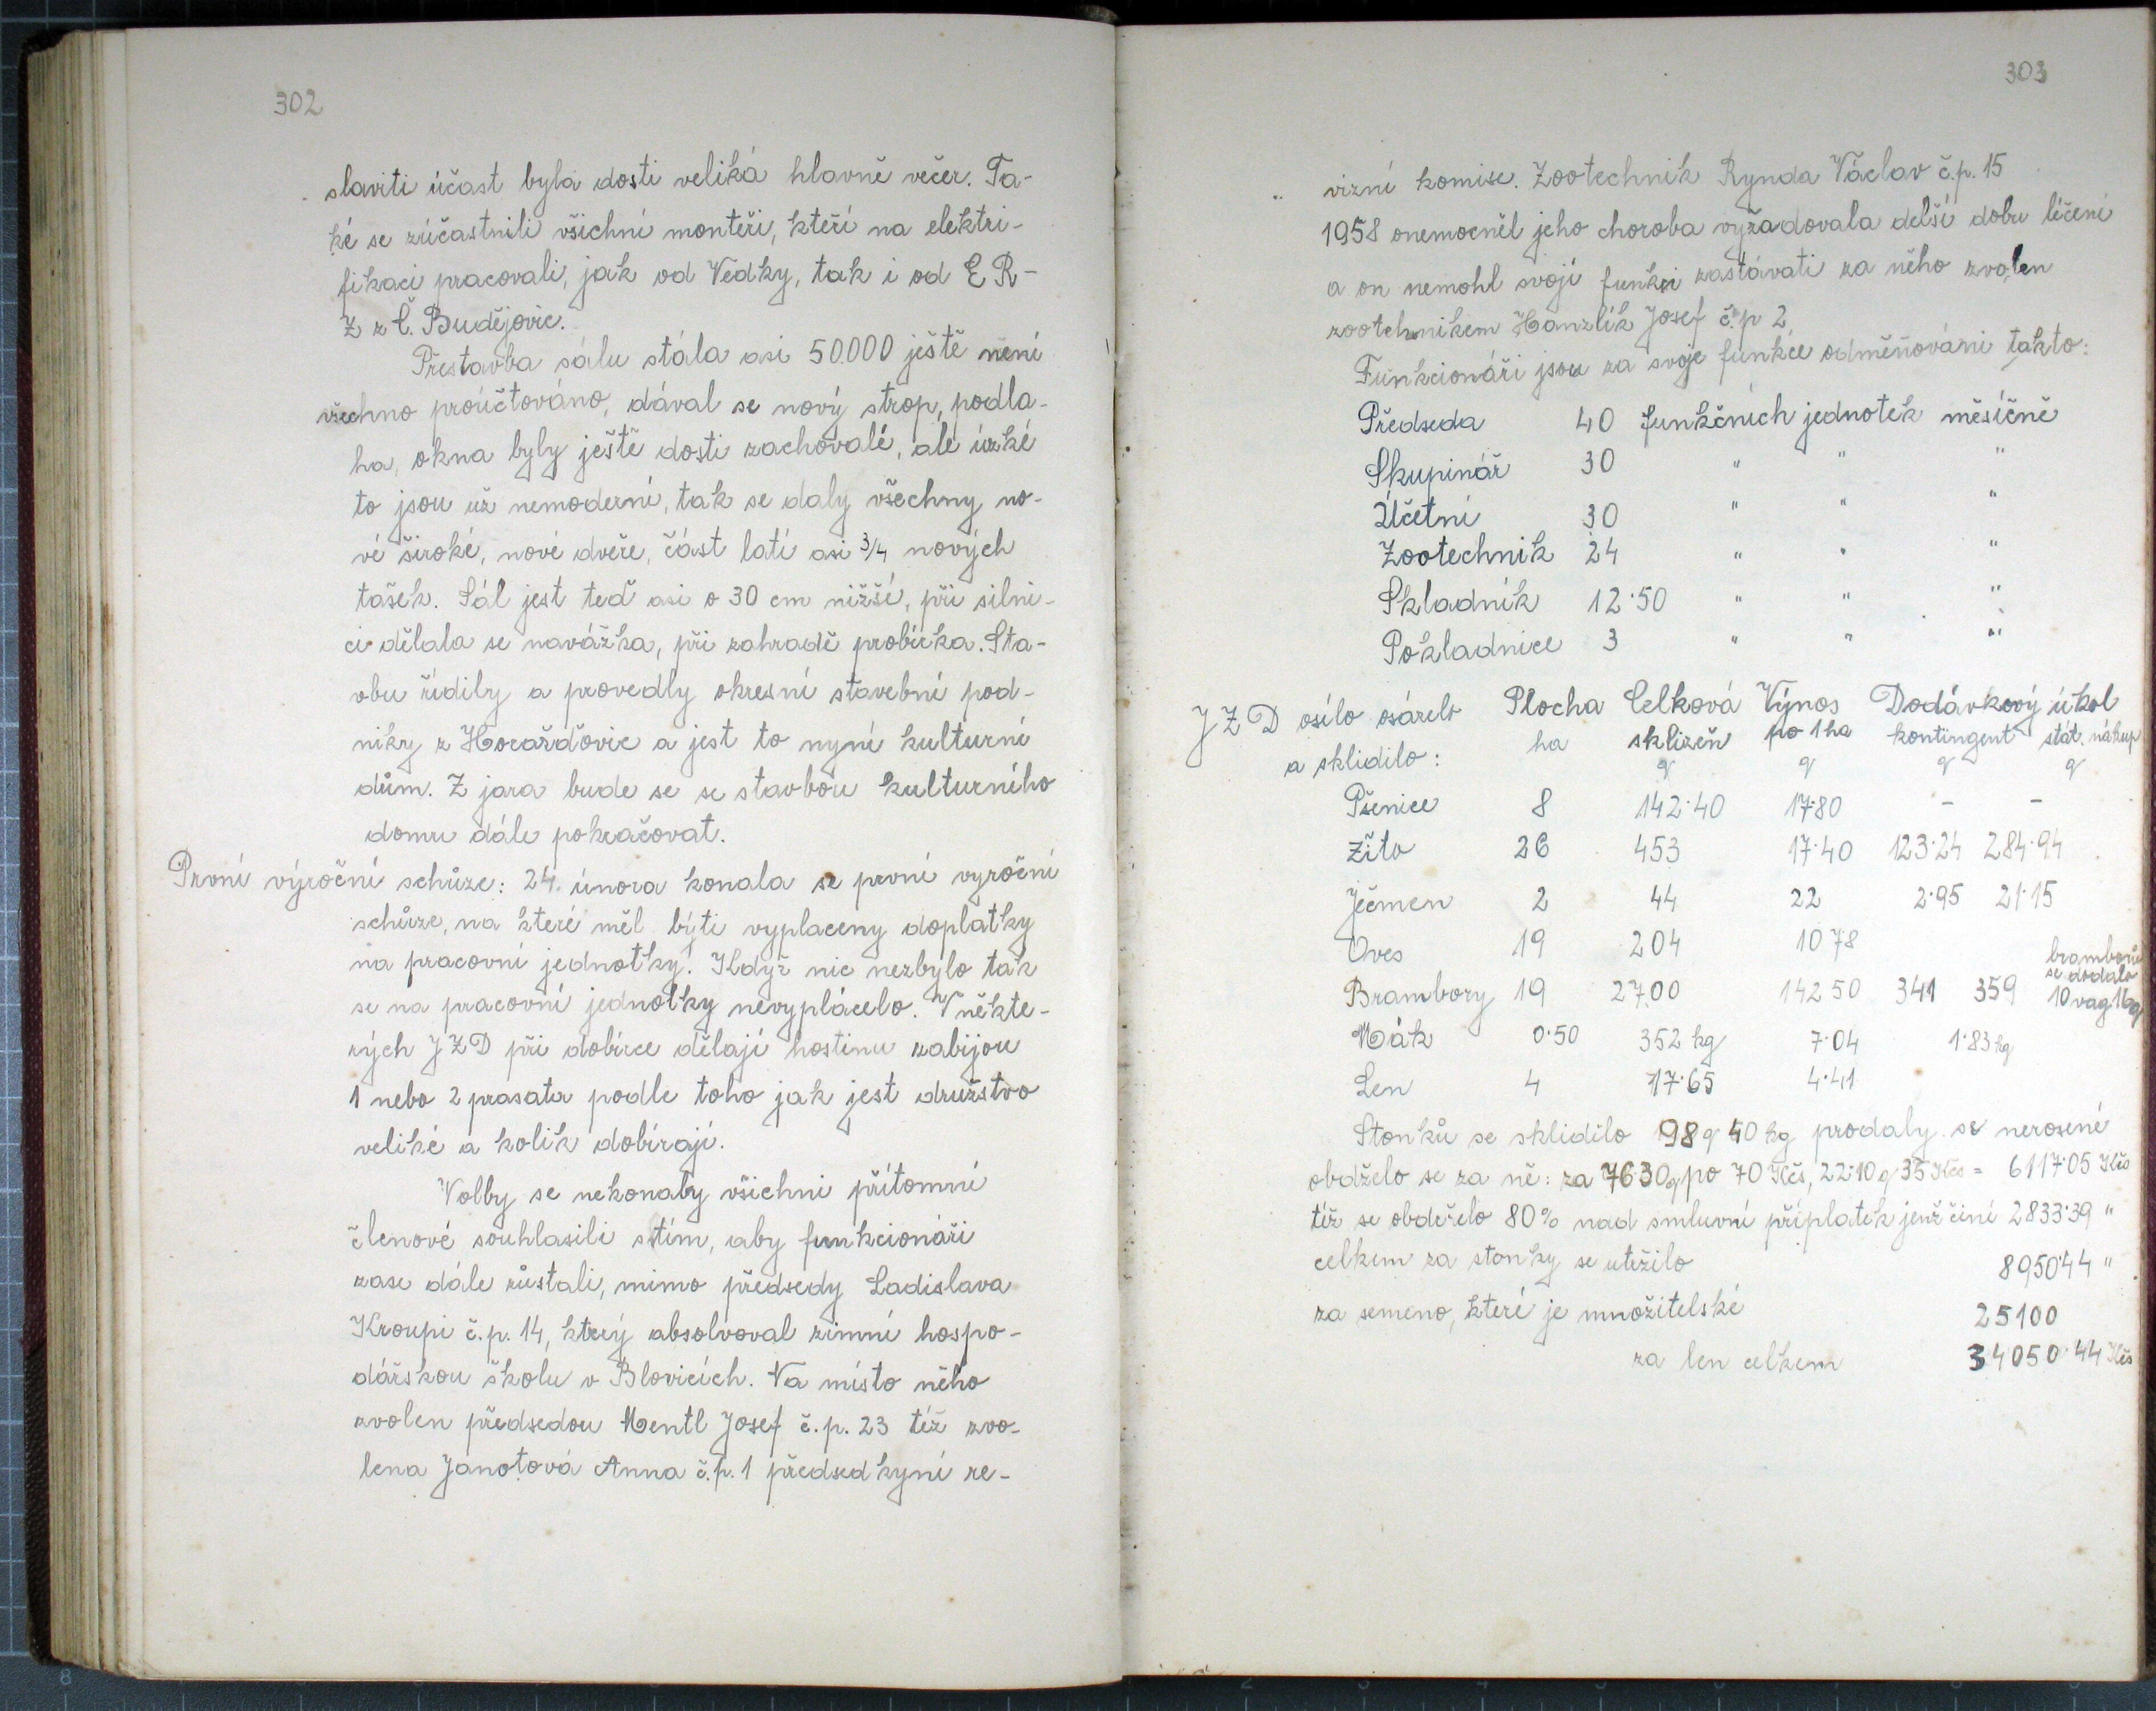 302
slaviti účast byla dosti veliká hlavně večer. Ta-
ké se zúčastnili všichni montéři, kteří na elektri-
fikaci pracovali, jak od Vedky, tak i od E R-
Z z Č. Budějovic.
Přestavba sálu stála asi 50.000 ještě není
všechno proúčtováno, dával se nový strop, podla-
ha, okna byly ještě dosti zachovalé, ale úzké
to jsou už nemoderní, tak se daly všechny no-
vé široké, nové dveře, část latí asi 3/4 nových
tašek. Sál jest teď asi o 30 cm nižší, při silni-
ci dělala se navážka, při zahradě probírka. Sta-
vbu řídily a provedly okresní stavební pod-
niky z Horažďovic a jest to nyní kulturní
dům. Z jara bude se se stavbou kulturního
domu dále pokračovat.
První výroční schůze: 24. února konala se první vyroční
schůze, na které měl býti vyplaceny doplatky
na pracovní jednotky. Když nic nezbylo tak
se na pracovní jednotky nevyplácelo. V někte-
rých JZD při dobírce dělají hostinu zabijou
1 nebo 2 prasata podle toho jak jest družstvo
veliké a kolik dobírají.
Volby se nekonaly všichni přítomní
členové souhlasili stím, aby funkcionáři
zase dále zůstali, mimo předsedy Ladislava
Kroupi č.p. 14, který absolvoval zimní hospo-
dářskou školu v Blovicích. Na místo něho
zvolen předsedou Mentl Josef č.p. 23 též zvo-
lena Janotová Anna č.p. 1 předsedkyní re-
303
vizní komise. Zootechnik Rynda Václav č.p. 15
1958 onemocněl jeho choroba vyžadovala delší dobu léčení
a on nemohl svoji funkci zastávati za něho zvolen
zootechnikem Hanzlík Josef č.p 2
Funkcionáři jsou za svoje funkce odměňováni takto:
Předseda 40 funkčních jednotek měsíčně
Skupinář 30 " " "
Účetní 30 " " "
Zootechnik 24 " " "
Skladník 12·50 " " "
Pokladnice 3 " " "
JZD osílo osázelo Plocha Celková Výnos Dodávkový úkol
a sklidilo: ha sklizeň po 1 ha kontingent stát. nákup
q q q q
Pšenice 8 142·40 17·80 - -
Žito 26 453 17·40 123·24 284·94
Ječmen 2 44 22 2·95 21·15
Oves 19 204 10 78
Brambory 19 27.00 142 50 341 359 bramborů
se dodalo
10 vag 16q
Mák 0·50 352 kg 7·04 1·83 kg
Len 4 17·65 4·41
Stonků se sklidilo 98 q 40 kg prodaly se nerosené
obdželo se za ně: za 76 30 q po 70 Kčs, 22·10 q 35 Kčs = 6117·05 Kčs
též se obdrželo 80% nad smluvní příplatek jenž činí 2833·39 "
celkem za stonky se utržilo 8950·44 "
za semeno, které je množitelské 25100
za len celkem 34050·44 Kčs